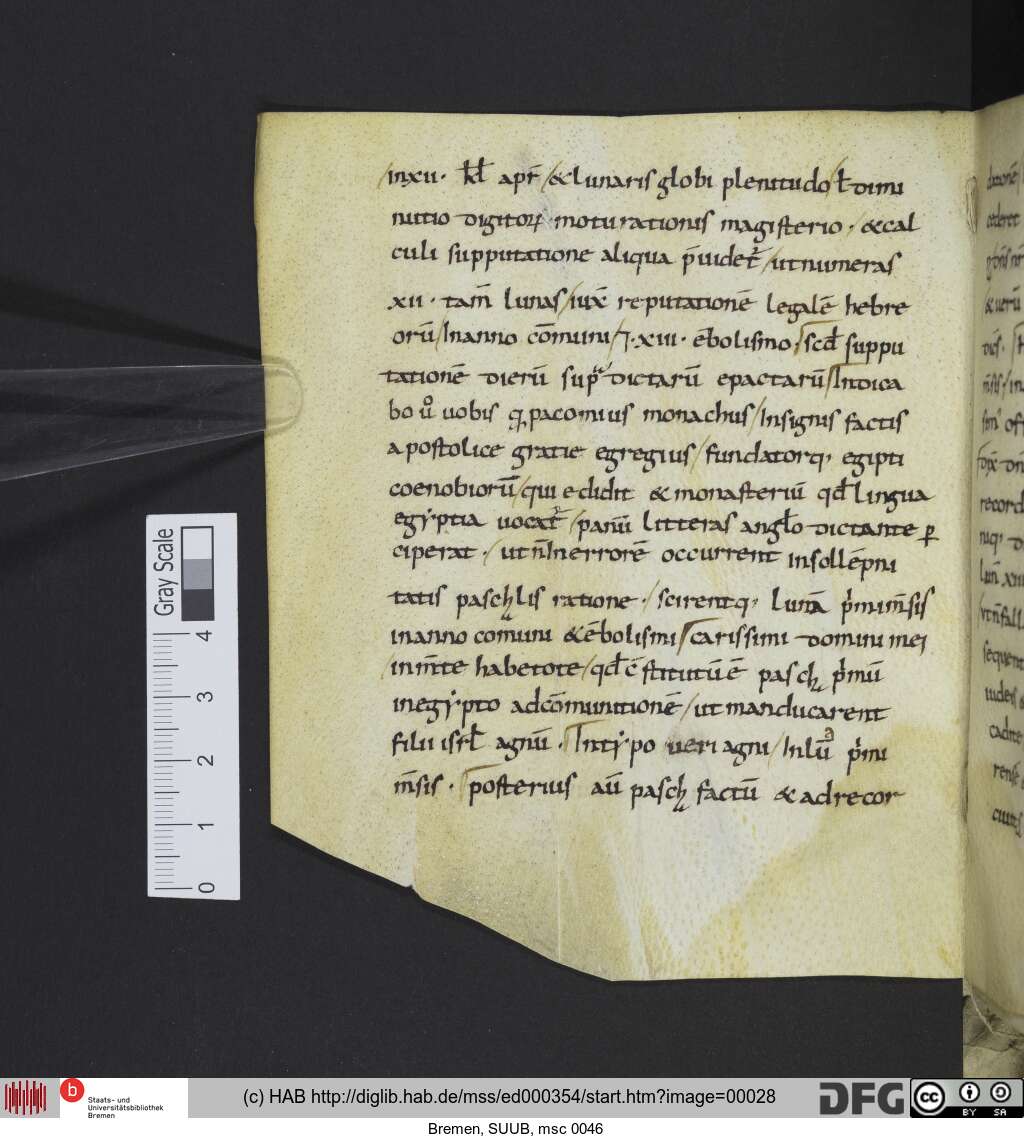 inxii · kł apr̄ / & lunaris globi plenitudo / ł dimi
nutio digitoꝝ motu rationis magisterio · & cal
culi supputatione aliqua p̄uidet᷑ / ut numeras
xii · tam̄ lunas / iux̄ reputationē legalē hebre
orū / In anno cōmuni / ⁊ · xiii · ēbolismo · scđ suppu
tationē dierū sup̄ dictarū epactarū / Indica
bo u͛o uobis ꝗ pacomius monachus / Insignis factis
apostolice gratie egregius / fundatorq; egipti
coenobiorū / qui edidit & monasteriū qđ lingua
egẏptia uocat᷑ / panū litteras angło dictante ꝑ
ciperat · / ut n̄ In errorē occurrent in sollēpni
tatis paschlis ratione · / scirentq; lunā p̄mi m̄sis
in anno comuni & ēbolismi / Carissimi domini mei
in m̄te habetote / qđ c̄stitutū ē pasch p̄mū
in egẏpto ad cōmunitionē / ut manducarent
filii isrł agnū · In tẏpo ueri agni / In lūa p̄mi
m̄sis · posterius aū pasch factū & ad recor
Gray Scale
4
3
2
1
0
b
Staats- und
Universitätsbibliothek
Bremen
(c) HAB http://diglib.hab.de/mss/ed000354/start.htm?image=00028
DFG
cc
BY SA
Bremen, SUUB, msc 0046